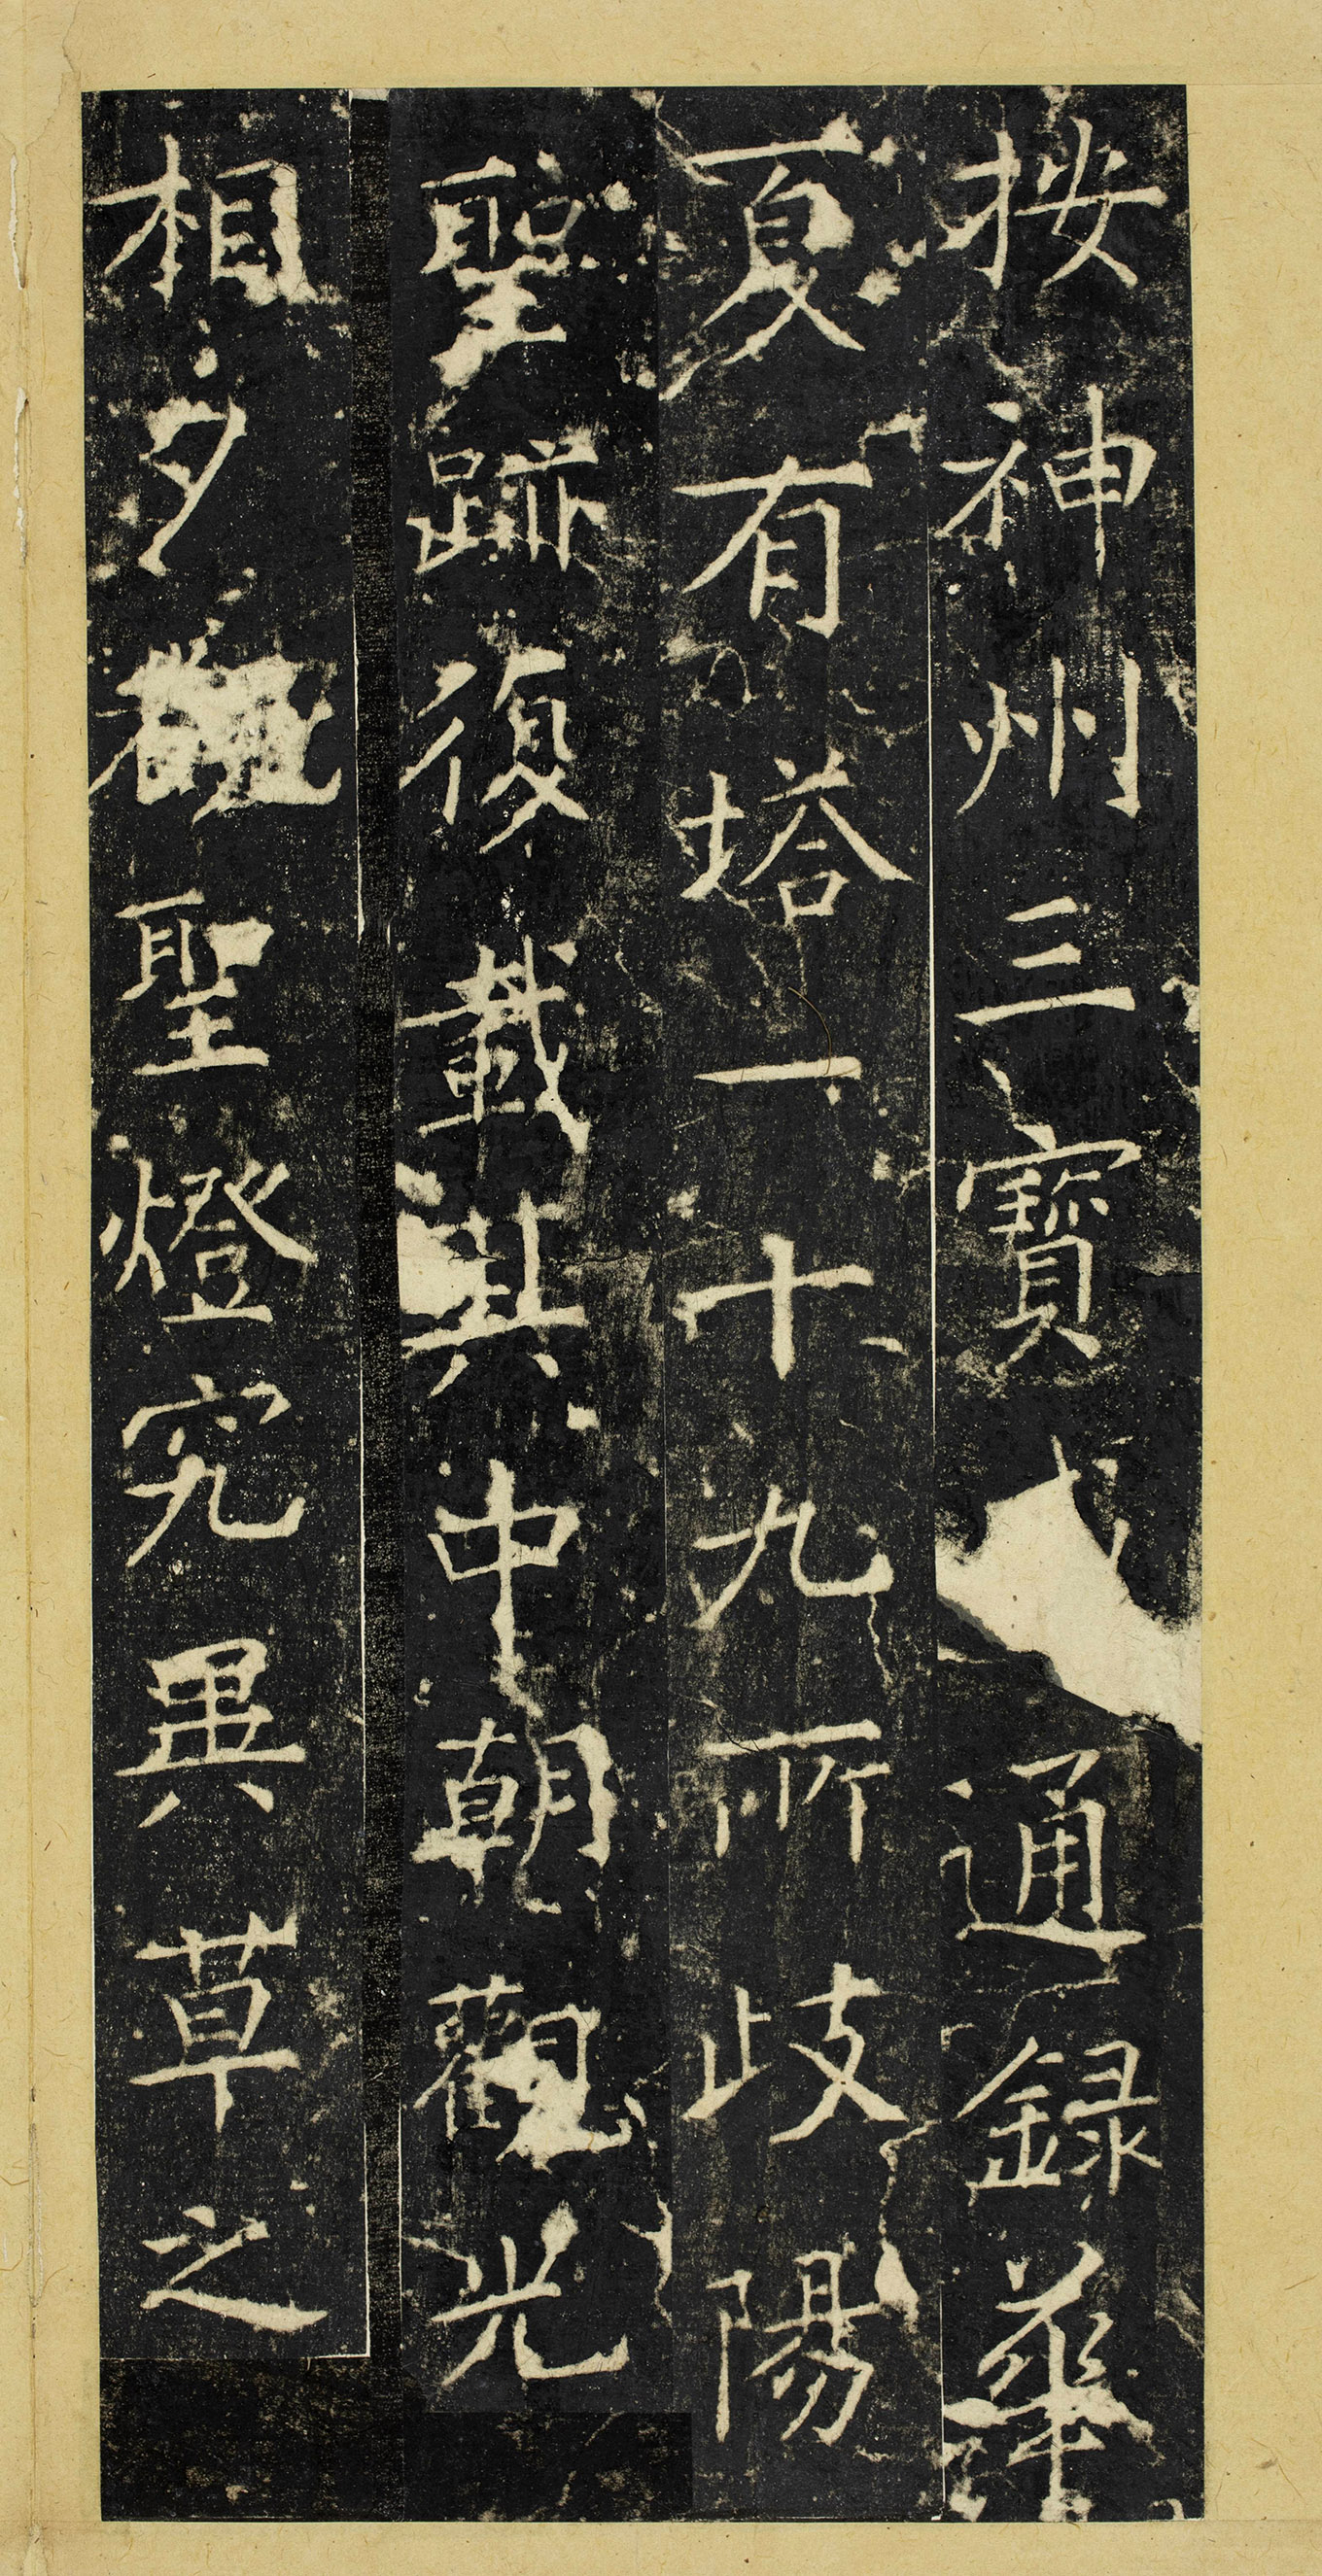 按神州三寶通錄華
夏有塔一十九所歧陽
聖跡復載其中朝觀光
相夕聖燈究異草之